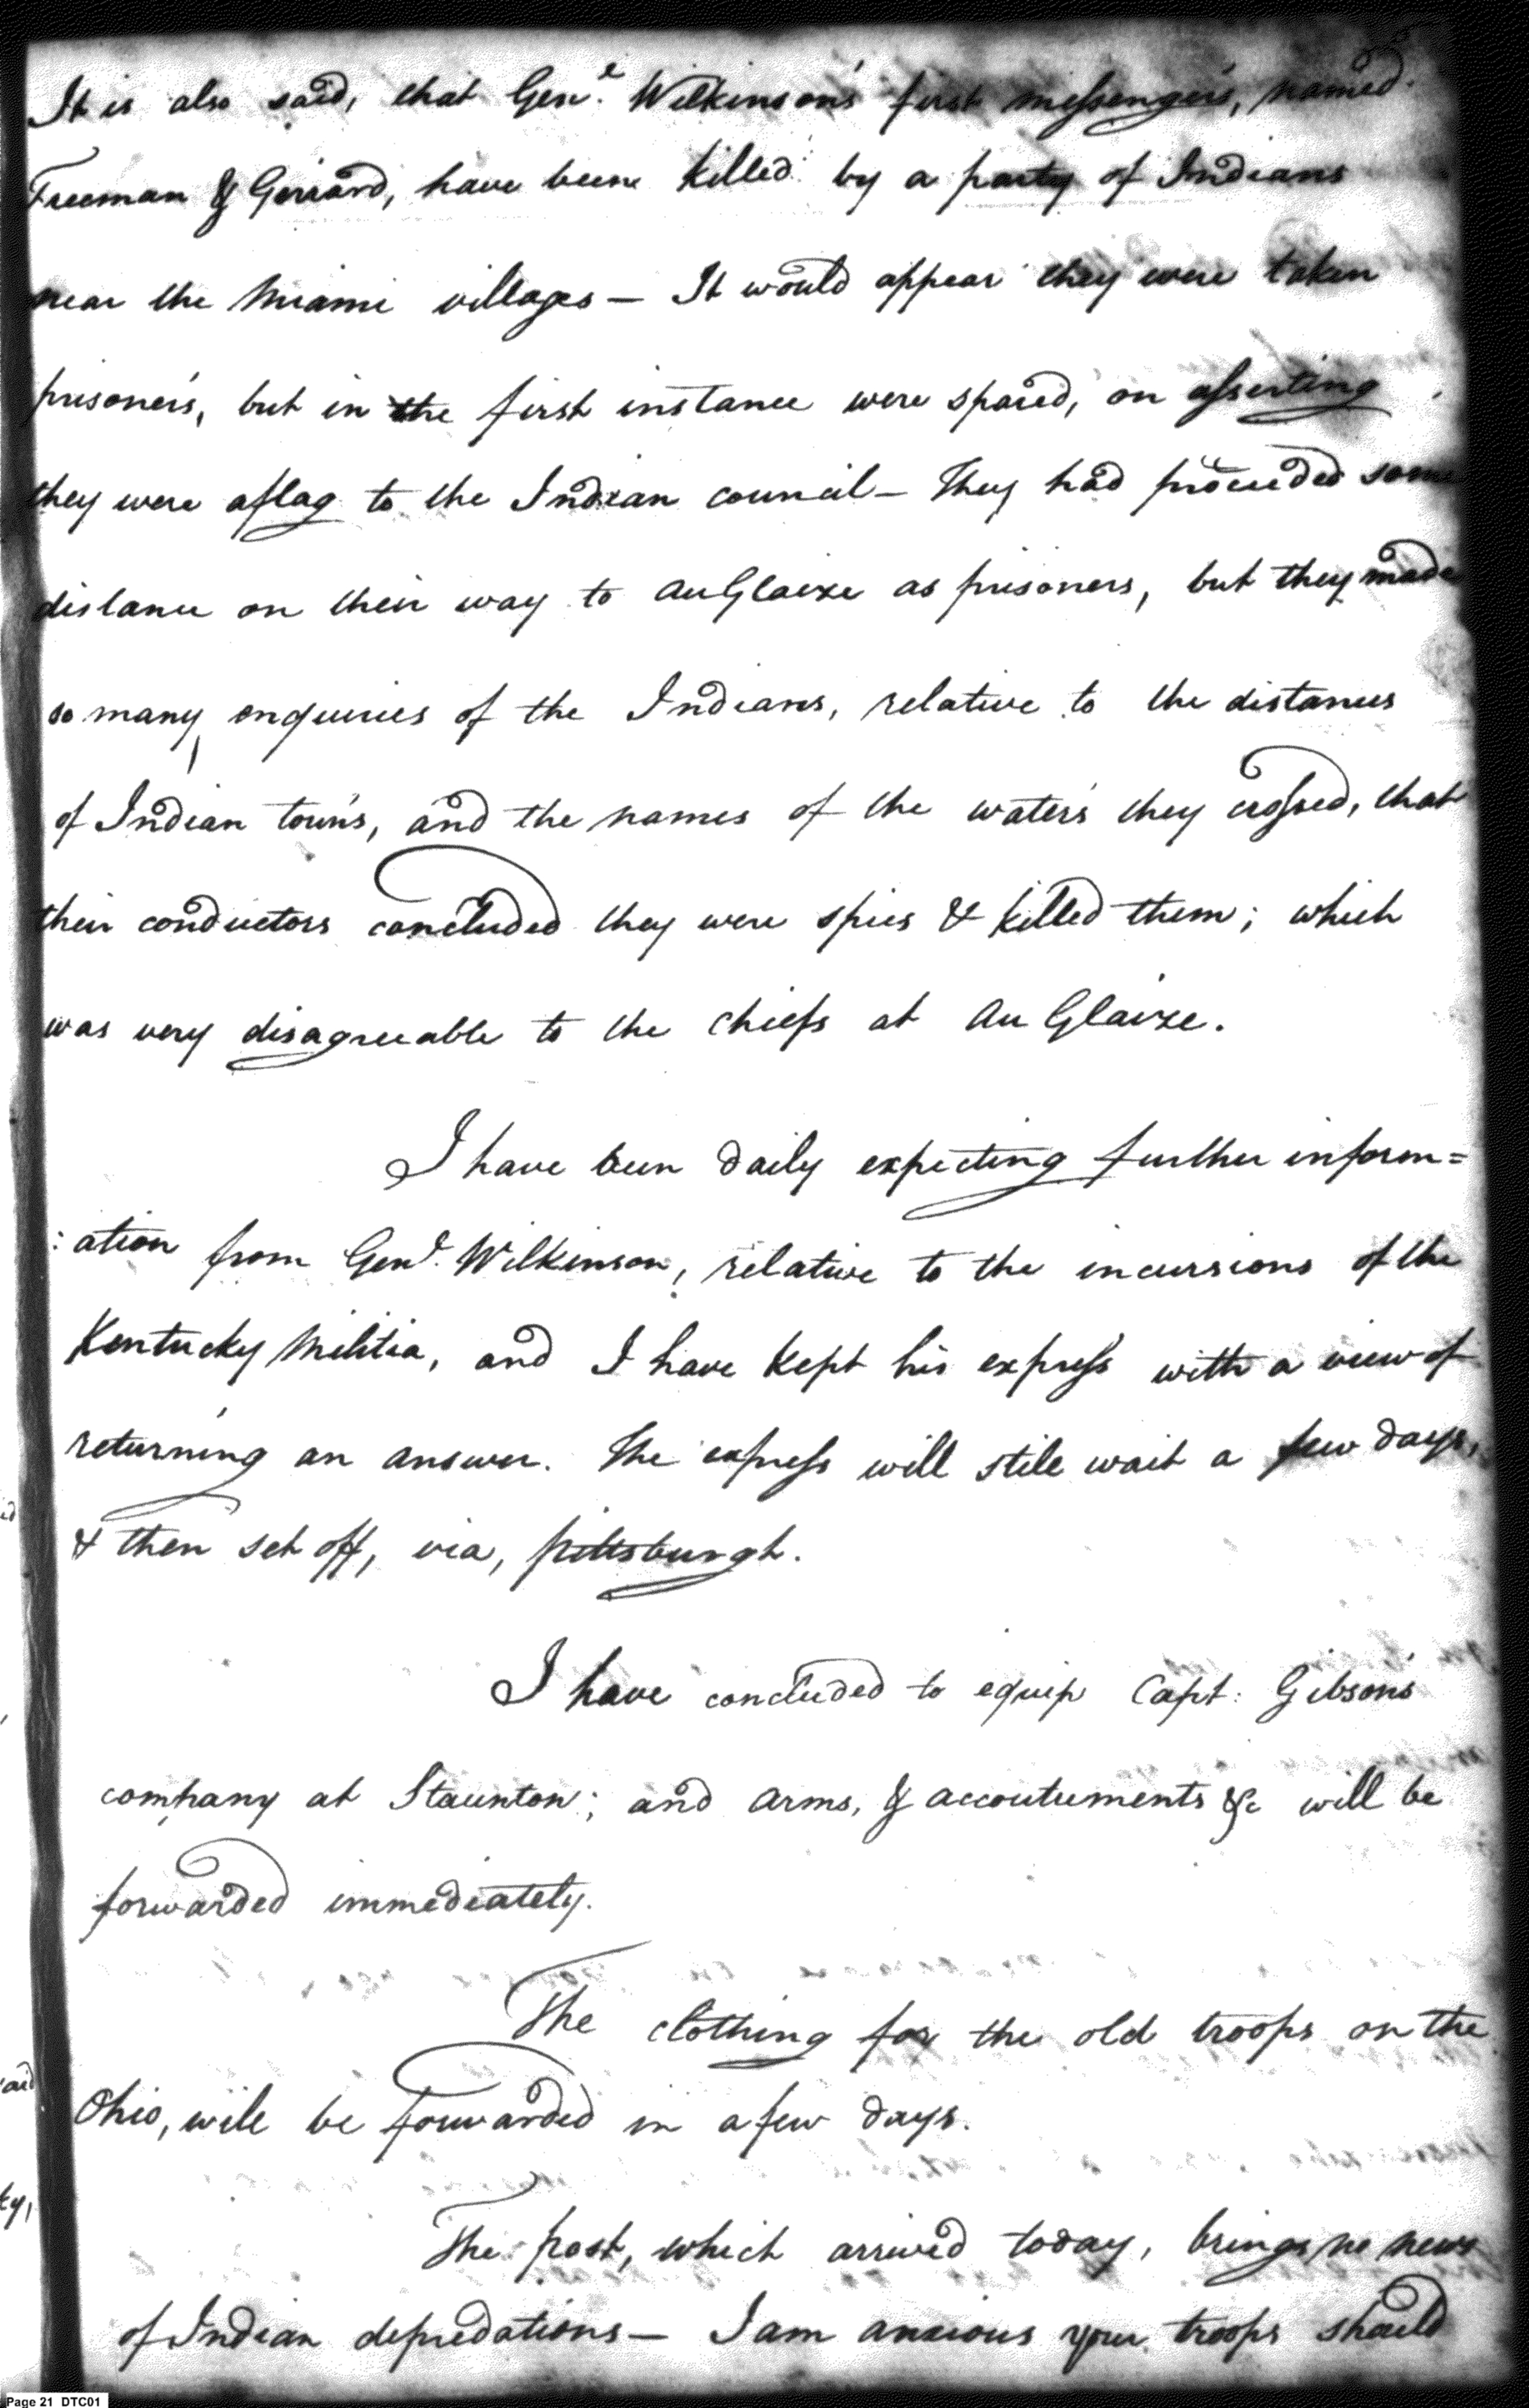 It is also said, that Genl. Wilkinson's first messengers, named
Freeman & Gerrard, have been killed by a party of Indians
near the Miami villages — It would appear they were taken
prisoners, but in the first instance were spared, on asserting
they were a flag to the Indian council — They had proceeded some
distance on their way to au Glaize as prisoners, but they made
so many enquiries of the Indians, relative to the distances
of Indian towns, and the names of the waters they crossed, that
their conductors concluded they were spies & killed them; which
was very disagreeable to the chiefs at au Glaize.
I have been daily expecting further inform=
:ation from Genl. Wilkinson, relative to the incursions of the
Kentucky Militia, and I have kept his express with a view of
returning an answer. The express will stile wait a few days,
& then set off, via, pittsburgh.
I have concluded to equip Capt: Gibson's
company at Staunton; and arms, & accoutuments &c will be
forwarded immediately.
The clothing for the old troops on the
Ohio, wile be forwarded in a few days.
The post, which arrived today, brings no news
of Indian depredations — I am anxious your troops should
Page 21 DTC01